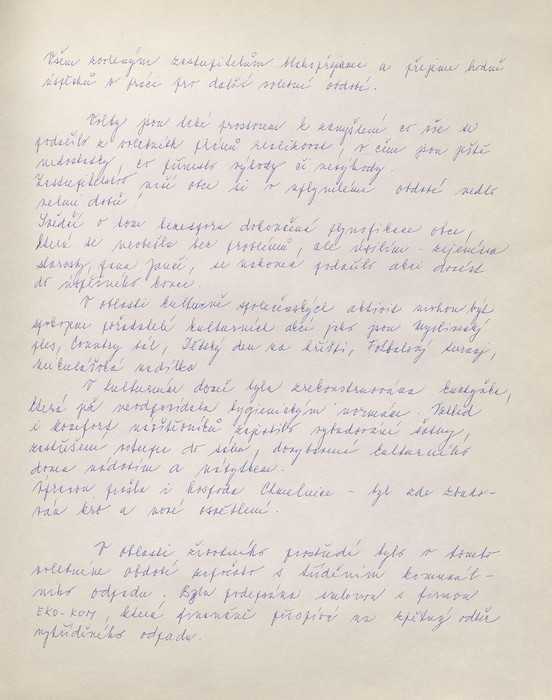 Všem zvoleným zastupitelům blahopřejeme a přejeme hodně
úspěchů v práci pro další volební období.
Volby jsou také prostorem k zamyšlení co vše se
podařilo z volebních plánů zrealizovat, v čem jsou ještě
nedostatky, co přineslo výhody či nevýhody.
Zastupitelstvo naší obce si v uplynulém období vedlo
velmi dobře!
Svědčí o tom beze sporu dokončená plynofikace obce,
která se neobešla bez problémů, ale úsilím - zejména
starosty, pana Janči, se nakonec podařilo akci dovést
do úspěšného konce.
V oblasti kulturně společenských aktivit mohou být
spokojeni pořadatelé kulturních akcí jako jsou Myslivecký
ples, Country bál, Dětský den na hřišti, Fotbalový turnaj,
Mikulášská nadílka.
V kulturním domě byla zrekonstruována kuchyňka,
která již neodpovídala hygienickým normám. Vzhled
i komfort návštěvníků zajistilo vybudování šatny,
zastřešení vstupu do sálu, dovybavení kulturního
domu nádobím a nábytkem.
Úpravou prošla i hospoda Chmelnice - byl zde zbudo-
ván krb a nové osvětlení.
V oblasti životního prostředí bylo v tomto
volebním období započato s tříděním komunál-
ního odpadu. Byla podepsána smlouva s firmou
EKO-KOM, která finančně přispívá na zpětný odběr
vytříděného odpadu.